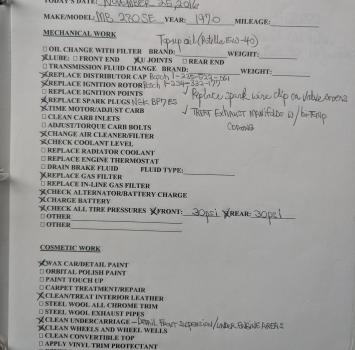 TODAY'S DATE: NOVEMBER 25, 2016
MAKE/MODEL: MB 280SE YEAR: 1970 MILEAGE:
MECHANICAL WORK
Top up oil (Rotella 15W-40)
OIL CHANGE WITH FILTER BRAND: WEIGHT:
LUBE: FRONT END U JOINTS REAR END
TRANSMISSION FLUID CHANGE BRAND: WEIGHT:
REPLACE DISTRIBUTOR CAP Bosch
REPLACE IGNITION ROTOR Bosch
REPLACE IGNITION POINTS
Replace spark wire clip on valve covers
REPLACE SPARK PLUGS NGK BP7ES
TIME MOTOR/ADJUST CARB
TREAT EXHAUST MANIFOLDS w/ hi-temp
coating
CLEAN CARB INLETS
ADJUST/TORQUE CARB BOLTS
CHANGE AIR CLEANER/FILTER
CHECK COOLANT LEVEL
REPLACE RADIATOR COOLANT
REPLACE ENGINE THERMOSTAT
DRAIN BRAKE FLUID FLUID TYPE:
REPLACE GAS FILTER
REPLACE IN-LINE GAS FILTER
CHECK ALTERNATOR/BATTERY CHARGE
CHARGE BATTERY
CHECK ALL TIRE PRESSURES FRONT: 30psi REAR: 30psi
OTHER
OTHER
COSMETIC WORK
WAX CAR/DETAIL PAINT
ORBITAL POLISH PAINT
PAINT TOUCH UP
CARPET TREATMENT/REPAIR
CLEAN/TREAT INTERIOR LEATHER
STEEL WOOL ALL CHROME TRIM
STEEL WOOL EXHAUST PIPES
CLEAN UNDERCARRIAGE - DETAIL FRONT SUSPENSION/UNDER ENGINE AREAS
CLEAN WHEELS AND WHEEL WELLS
CLEAN CONVERTIBLE TOP
APPLY VINYL TRIM PROTECTANT